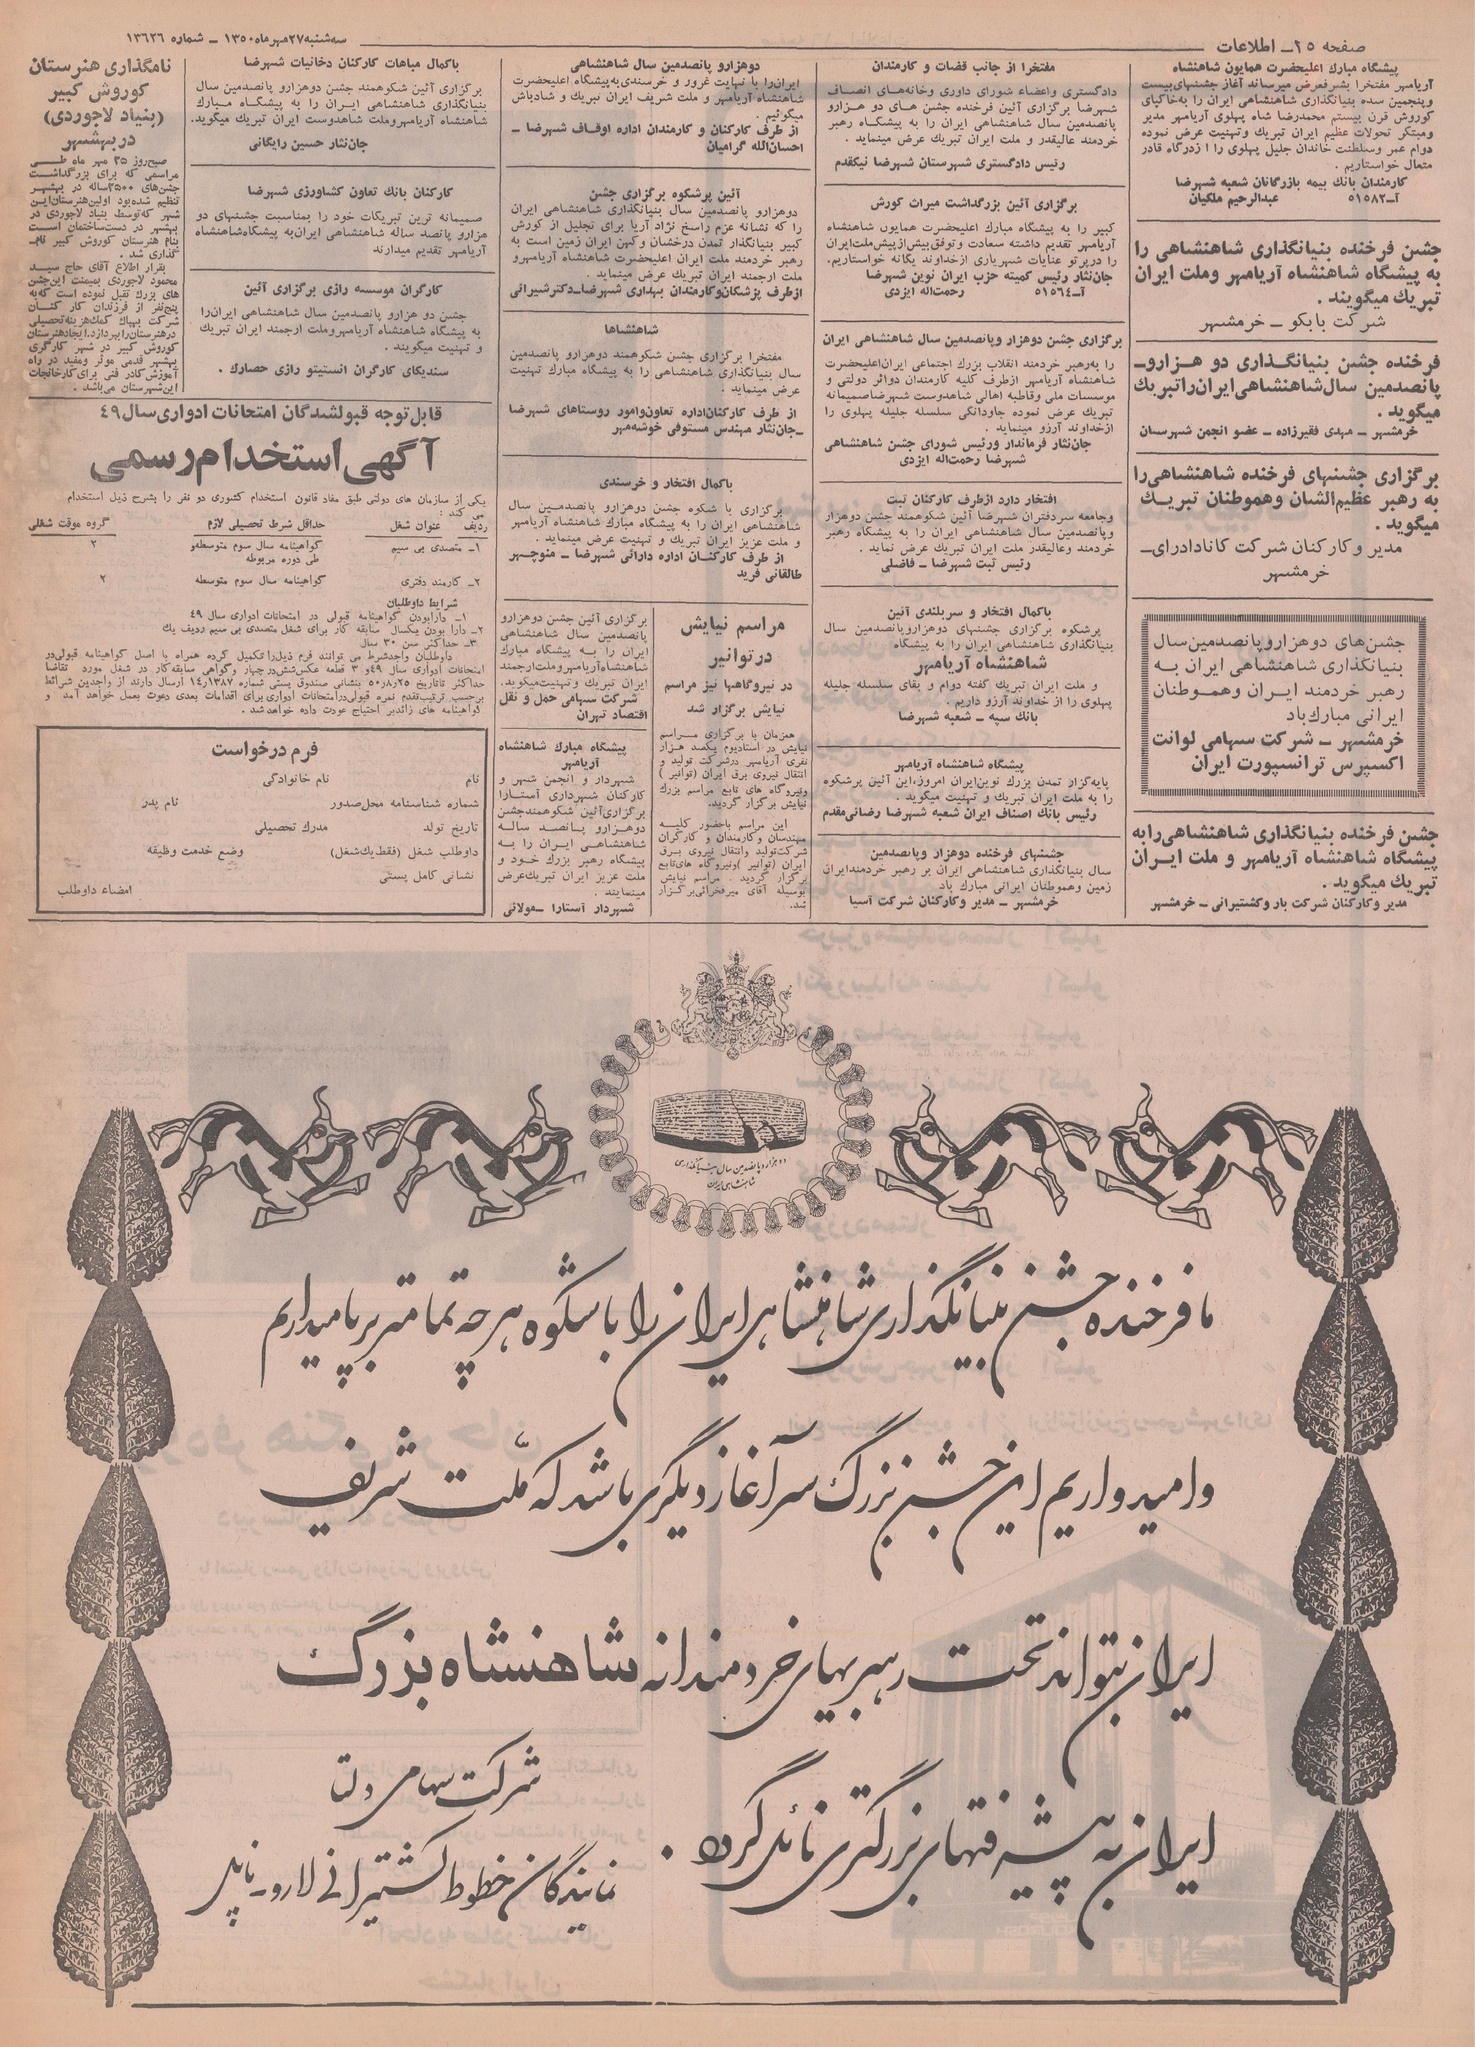 صفحه ۲۵ـ اطلاعات
سه‌شنبه ۲۷ مهر ماه ۱۳۵۰ ـ شماره ۱۳۶۲۶
پیشگاه مبارك اعلیحضرت همایون شاهنشاه
آریامهر مفتخرا بشرفعرض میرساند آغاز جشنهای بیست
وپنجمین سده بنیانگذاری شاهنشاهی ایران را به‌خاکپای
کوروش قرن بیستم محمدرضا شاه پهلوی آریامهر مدیر
ومبتکر تحولات عظیم ایران تبریك وتهنیت عرض نموده
دوام عمر وسلطنت خاندان جلیل پهلوی را از درگاه قادر
متعال خواستاریم .
کارمندان بانك بیمه بازرگانان شعبه شهرضا
آـ ۵۱۵۸۲ عبدالرحیم ملکیان
جشن فرخنده بنیانگذاری شاهنشاهی را
به پیشگاه شاهنشاه آریامهر وملت ایران
تبریك میگویند .
شرکت بابکو ـ خرمشهر
فرخنده جشن بنیانگذاری دو هزاروـ
پانصدمین سال‌شاهنشاهی‌ایران‌راتبریك
میگوید .
خرمشهر ـ مهدی فقیرزاده ـ عضو انجمن شهرستان
برگزاری جشنهای فرخنده شاهنشاهی‌را
به رهبر عظیم‌الشان وهموطنان تبریك
میگوید .
مدیر وکارکنان شرکت کانادادرای‌ـ
خرمشهر
جشن‌های دوهزاروپانصدمین‌سال
بنیانگذاری شاهنشاهی ایران به
رهبر خردمند ایران وهموطنان
ایرانی مبارك‌باد
خرمشهر ـ شرکت سهامی لوانت
اکسپرس ترانسپورت ایران
جشن فرخنده بنیانگذاری شاهنشاهی‌رابه
پیشگاه شاهنشاه آریامهر و ملت ایران
تبریك میگوید .
مدیر وکارکنان شرکت بار وکشتیرانی ـ خرمشهر
مفتخرا از جانب قضات و کارمندان
دادگستری واعضاء شورای داوری وخانه‌های انصاف
شهرضا برگزاری آئین فرخنده جشن های دو هزارو
پانصدمین سال شاهنشاهی ایران را به پیشگاه رهبر
خردمند عالیقدر و ملت ایران تبریك عرض مینماید .
رئیس دادگستری شهرستان شهرضا نیکقدم
برگزاری آئین بزرگداشت میراث کورش
کبیر را به پیشگاه مبارك اعلیحضرت همایون شاهنشاه
آریامهر تقدیم داشته سعادت وتوفق‌بیش‌ازپیش‌ملت‌ایران
را درپرتو عنایات شهریاری ازخداوند یگانه خواستاریم.
جان‌نثار رئیس کمیته حزب ایران نوین شهرضا
آـ ۵۱۵۶۴ رحمت‌اله ایزدی
برگزاری جشن دوهزار وپانصدمین سال شاهنشاهی ایران
را به‌رهبر خردمند انقلاب بزرك اجتماعی ایران‌اعلیحضرت
شاهنشاه آریامهر ازطرف کلیه کارمندان دوائر دولتی و
موسسات ملی وقاطبه اهالی شاهدوست شهرضاصمیمانه
تبریك عرض نموده جاودانگی سلسله جلیله پهلوی را
ازخداوند آرزو مینماید .
جان‌نثار فرماندار ورئیس شورای جشن شاهنشاهی
شهرضا رحمت‌اله ایزدی
افتخار دارد ازطرف کارکنان ثبت
وجامعه سردفتران شهرضا آئین شکوهمند جشن دوهزار
وپانصدمین سال شاهنشاهی ایران را به پیشگاه رهبر
خردمند وعالیقدر ملت ایران تبریك عرض نماید .
رئیس ثبت شهرضا ـ فاضلی
باکمال افتخار و سربلندی آئین
پرشکوه برگزاری جشنهای دوهزاروپانصدمین سال
بنیانگذاری شاهنشاهی ایران را به پیشگاه
شاهنشاه آریامهر
و ملت ایران تبریك گفته دوام و بقای سلسله جلیله
پهلوی را از خداوند آرزو داریم .
بانك سپه ـ شعبه شهرضا
پیشگاه شاهنشاه آریامهر
پایه‌گزار تمدن بزرك نوین‌ایران امروز،این آئین پرشکوه
را به ملت ایران تبریك و تهنیت میگوید .
رئیس بانك اصناف ایران شعبه شهرضا رضائی‌مقدم
جشنهای فرخنده دوهزار وپانصدمین
سال بنیانگذاری شاهنشاهی ایران بر رهبر خردمندایران
زمین وهموطنان ایرانی مبارك باد
خرمشهر ـ مدیر وکارکنان شرکت آسیا
دوهزارو پانصدمین سال شاهنشاهی
ایران‌را با نهایت غرور و خرسندی‌به‌پیشگاه اعلیحضرت
شاهنشاه آریامهر و ملت شریف ایران تبریك و شادباش
میگوئیم .
از طرف کارکنان و کارمندان اداره اوقاف شهرضا ـ
احسان‌الله گرامیان
آئین پرشکوه برگزاری جشن
دوهزارو پانصدمین سال بنیانگذاری شاهنشاهی ایران
را که نشانه عزم راسخ نژاد آریا برای تجلیل از کورش
کبیر بنیانگذار تمدن درخشان وکهن ایران زمین است به
رهبر خردمند ملت ایران اعلیحضرت شاهنشاه آریامهرو
ملت ارجمند ایران تبریك عرض مینماید .
ازطرف پزشکان‌وکارمندان بهداری شهرضاـ دکترشیرانی
شاهنشاها
مفتخرا برگزاری جشن شکوهمند دوهزارو پانصدمین
سال بنیانگذاری شاهنشاهی را به پیشگاه مبارك تهنیت
عرض مینماید .
از طرف کارکنان‌اداره تعاون‌وامور روستاهای شهرضا
ـجان‌نثار مهندس مستوفی خوشه‌مهر
باکمال افتخار و خرسندی
برگزاری با شکوه جشن دوهزارو پانصدمین سال
شاهنشاهی ایران را به پیشگاه مبارك شاهنشاه آریامهر
و ملت عزیز ایران تبریك و تهنیت عرض مینماید .
از طرف کارکنان اداره دارائی شهرضا ـ منوچهر
طالقانی فرید
مراسم نیایش
در توانیر
در نیروگاهها نیز مراسم
نیایش برگزار شد
همزمان با برگزاری مراسم
نیایش در استادیوم یکصد هزار
نفری آریامهر درشرکت تولید و
انتقال نیروی برق ایران (توانیر)
ونیروگاه های تابع مراسم بزرك
نیایش برگزار گردید.
این مراسم باحضور کلیه
مهندسان و کارمندان و کارگران
شرکت‌تولید وانتقال نیروی برق
ایران (توانیر )ونیروگاه های‌تابع
برگزار گردید . مراسم نیایش
بوسیله آقای میرفخرائی‌برگزار
شد.
برگزاری آئین جشن دوهزارو
پانصدمین سال شاهنشاهی
ایران را به پیشگاه مبارك
شاهنشاه‌آریامهروملت‌ارجمند
ایران تبریك‌وتهنیت‌میگوید.
شرکت سهامی حمل و نقل
اقتصاد تهران
پیشگاه مبارك شاهنشاه
آریامهر
شهردار و انجمن شهر و
کارکنان شهرداری آستارا
برگزاری‌آئین شکوهمندجشن
دوهزارو پانصد ساله
شاهنشاهی ایران را به
پیشگاه رهبر بزرك خود و
ملت عزیز ایران تبریك‌عرض
مینمایند .
شهردار آستارا ـ‌مولائی
باکمال مباهات کارکنان دخانیات شهرضا
برگزاری آئین شکوهمند جشن دوهزارو پانصدمین سال
بنیانگذاری شاهنشاهی ایران را به پیشگاه مبارك
شاهنشاه آریامهروملت شاهدوست ایران تبریك میگوید.
جان‌نثار حسین رایگانی
کارکنان بانك تعاون کشاورزی شهرضا
صمیمانه ترین تبریکات خود را بمناسبت جشنهای دو
هزارو پانصد ساله شاهنشاهی ایران‌به پیشگاه‌شاهنشاه
آریامهر تقدیم میدارند
کارگران موسسه رازی برگزاری آئین
جشن دو هزارو پانصدمین سال شاهنشاهی ایران‌را
به پیشگاه شاهنشاه آریامهروملت ارجمند ایران تبریك
و تهنیت میگویند .
سندیکای کارگران انستیتو رازی حصارك .
نامگذاری هنرستان
کوروش کبیر
(بنیاد لاجوردی)
دربهشهر
صبح‌روز ۲۵ مهر ماه طی
مراسمی که برای بزرگداشت
جشن‌های ۲۵۰۰ساله در بهشهر
تنظیم شده‌بود اولین‌هنرستان‌این
شهر که‌توسط بنیاد لاجوردی در
بهشهر در دست‌ساختمان است
بنام هنرستان کوروش کبیر نام‌ـ
گذاری شد .
بقرار اطلاع آقای حاج سید
محمود لاجوردی بمیمنت این‌جشن
های بزرك تقبل نموده است که‌به
پنج‌نفر از فرزندان کارکنان
شرکت بهپاك کمك‌هزینه‌تحصیلی
درهنرستان‌رابپردازد.ایجادهنرستان
کوروش کبیر در شهر کارگری
بهشهر قدمی موثر ومفید در راه
آموزش‌کادر فنی برای‌کارخانجات
این‌شهرستان می‌باشد .
قابل‌توجه قبولشدگان امتحانات ادواری سال ۴۹
آگهی استخدام رسمی
یکی از سازمان های دولتی طبق مفاد قانون استخدام کشوری دو نفر را بشرح ذیل استخدام
می کند :
ردیف عنوان شغل حداقل شرط تحصیلی لازم گروه موقت شغلی
۱ـ متصدی بی سیم گواهینامه سال سوم متوسطه‌و ۲
طی دوره مربوطه
۲ـ کارمند دفتری گواهینامه سال سوم متوسطه ۲
شرایط داوطلبان
۱ـ دارابودن گواهینامه قبولی در امتحانات ادواری سال ۴۹
۲ـ دارا بودن یکسال سابقه کار برای شغل متصدی بی سیم ردیف یك
۳ـ حداکثر سن ۳۰ سال
داوطلبان واجدشرط می توانند فرم ذیل‌راتکمیل کرده همراه با اصل گواهینامه قبولی‌در
امتحانات ادواری سال ۴۹و ۳ قطعه عکس‌شش‌درچهار وگواهی سابقه‌کار در شغل مورد تقاضا
حداکثر تاتاریخ ۲۵ر۸ر۵۰ بنشانی صندوق پستی شماره ۱۳۸۷ر۱۴ ارسال دارند از واجدین شرائط
برحسب ترتیب‌تقدم نمره قبولی‌درامتحانات ادواری‌برای اقدامات بعدی دعوت بعمل خواهد آمد و
گواهینامه های زائدبر احتیاج عودت داده خواهدشد .
فرم درخواست
نام نام خانوادگی
شماره شناسنامه محل‌صدور نام پدر
تاریخ تولد مدرك تحصیلی
داوطلب شغل (فقط‌یك‌شغل) وضع خدمت وظیفه
نشانی کامل پستی
امضاء داوطلب
دوهزار و پانصدمین سال بنیانگذاری
شاهنشاهی ایران
ما فرخنده جشن بنیانگذاری شاهنشاهی ایران را باشکوه هر چه تمامتر برپا میداریم
و امیدواریم این جشن بزرگ سرآغاز دیگری باشد که ملّت شریف
ایران بتواند تحت رهبریهای خردمندانه شاهنشاه بزرگ
ایران به پیشرفتهای بزرگتری نائل گردد .
شرکت سهامی دلتا
نمایندگان خطوط کشتیرانی لارو ـ ناپلی